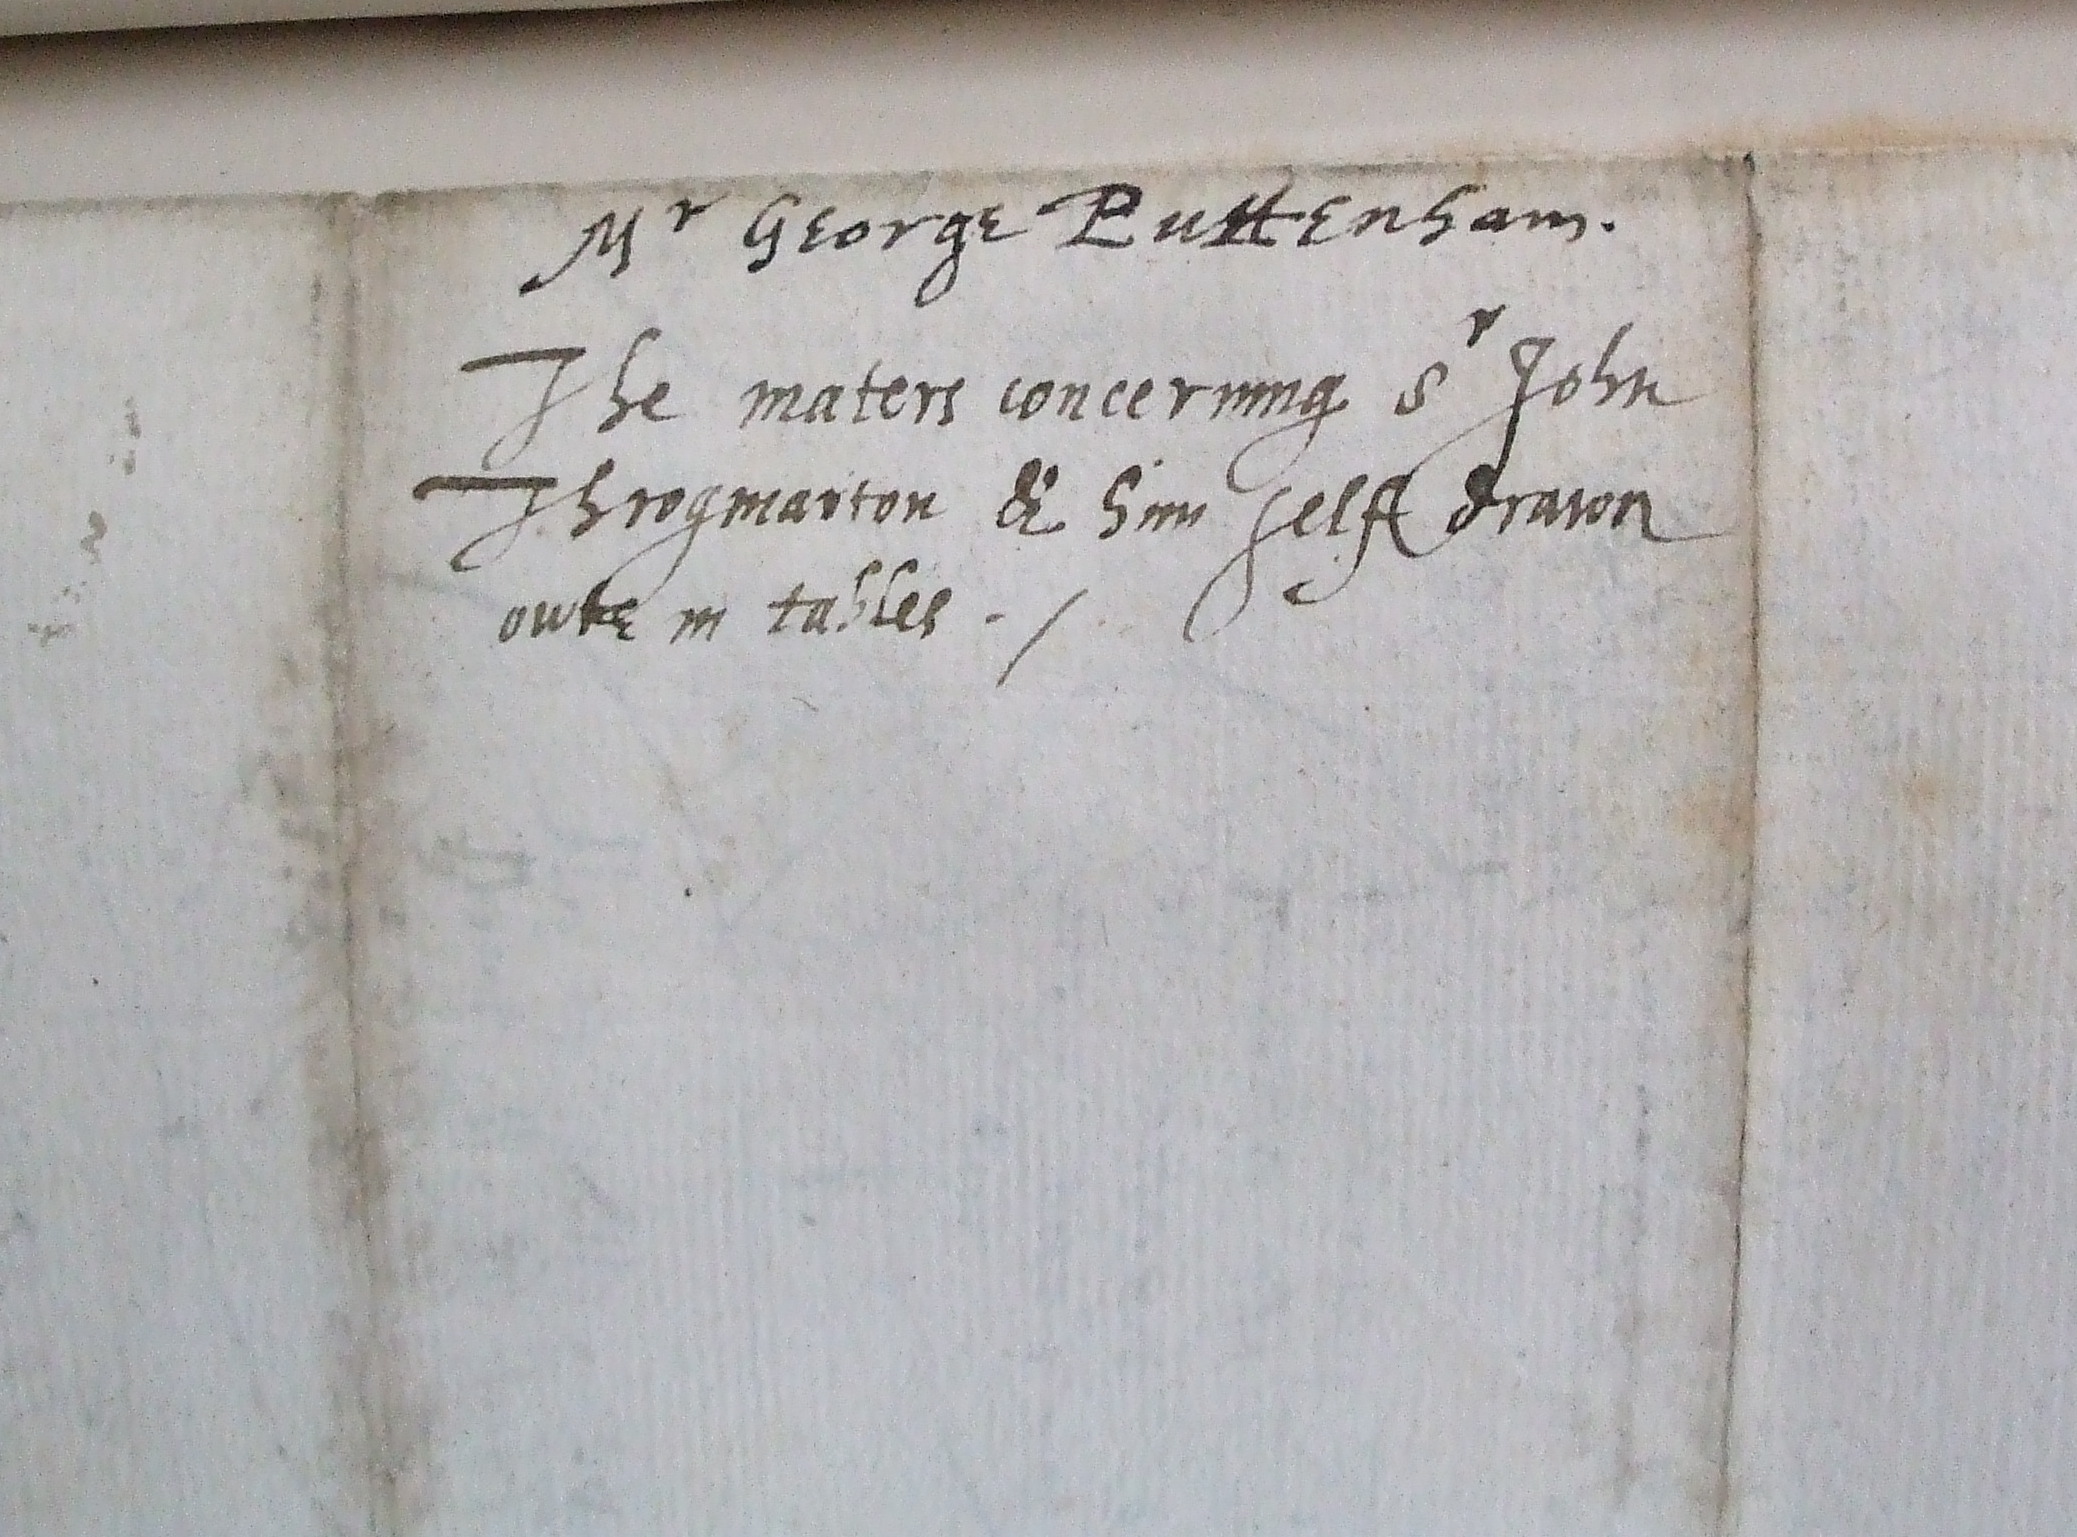 Mr George Puttenham.
The maters concerning Sr John
Throgmarton & him self drawn
owte in tables - /